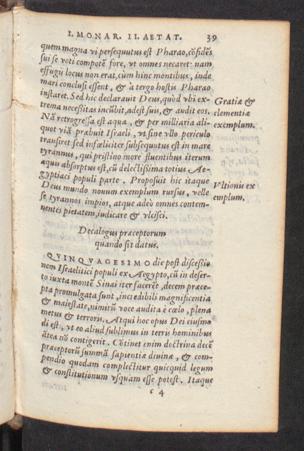 I. MONAR. II. AETAT. 39
quem magna vi persequutus est Pharao, cõfidẽs
sui se voti compotẽ fore, vt omnes necaret: nam
effugij locus non erat, cùm hinc montibus, inde
mari conclusi essent, & à tergo hostis Pharao
instaret. Sed hic declarauit Deus, quòd vbi ex-
trema necessitas incũbit, adest suis, & audit eos.
Nã retrogressa est aqua, & per milliaria ali-
quot viã præbuit Israëli, vt sine vllo periculo
transiret sed infæliciter subsequutus est in mare
tyrannus, qui pristino more fluentibus iterum
aquis absorptus est, cũ delectissima totius Ae-
gyptiaci populi parte. Proposuit hic itaque
Deus mundo nouum exemplum rursus, velle
se tyrannos impios, atque adeò omnes contem-
nentes pietatem, iudicare & vlcisci.
Gratiæ &
clementiæ
exemplum.
Vltionis ex
emplum.
Decalogus præceptorum
quando sit datus.
QVINQVAGESIMO die post discessio
nem Israëlitici populi ex Aegypto, cũ in deser-
to iuxta montẽ Sinai iter facerẽt, decem præce-
pta promulgata sunt, incredibili magnificentia
& maiestate, nimirũ voce audita è cœlo, plena
metus & terroris. Atqui hoc opus Dei eiusmo
di est, vt eo aliud sublimius in terris hominibus
antea nõ contigerit. Cõtinet enim doctrina decẽ
præceptorũ summã sapientiæ diuinæ, & com-
pendio quodam complectitur quicquid legum
& constitutionum vsquam esse potest. Itaque
c 4